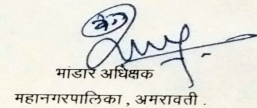 भांडार अधिक्षक
महानगरपालिका, अमरावती.